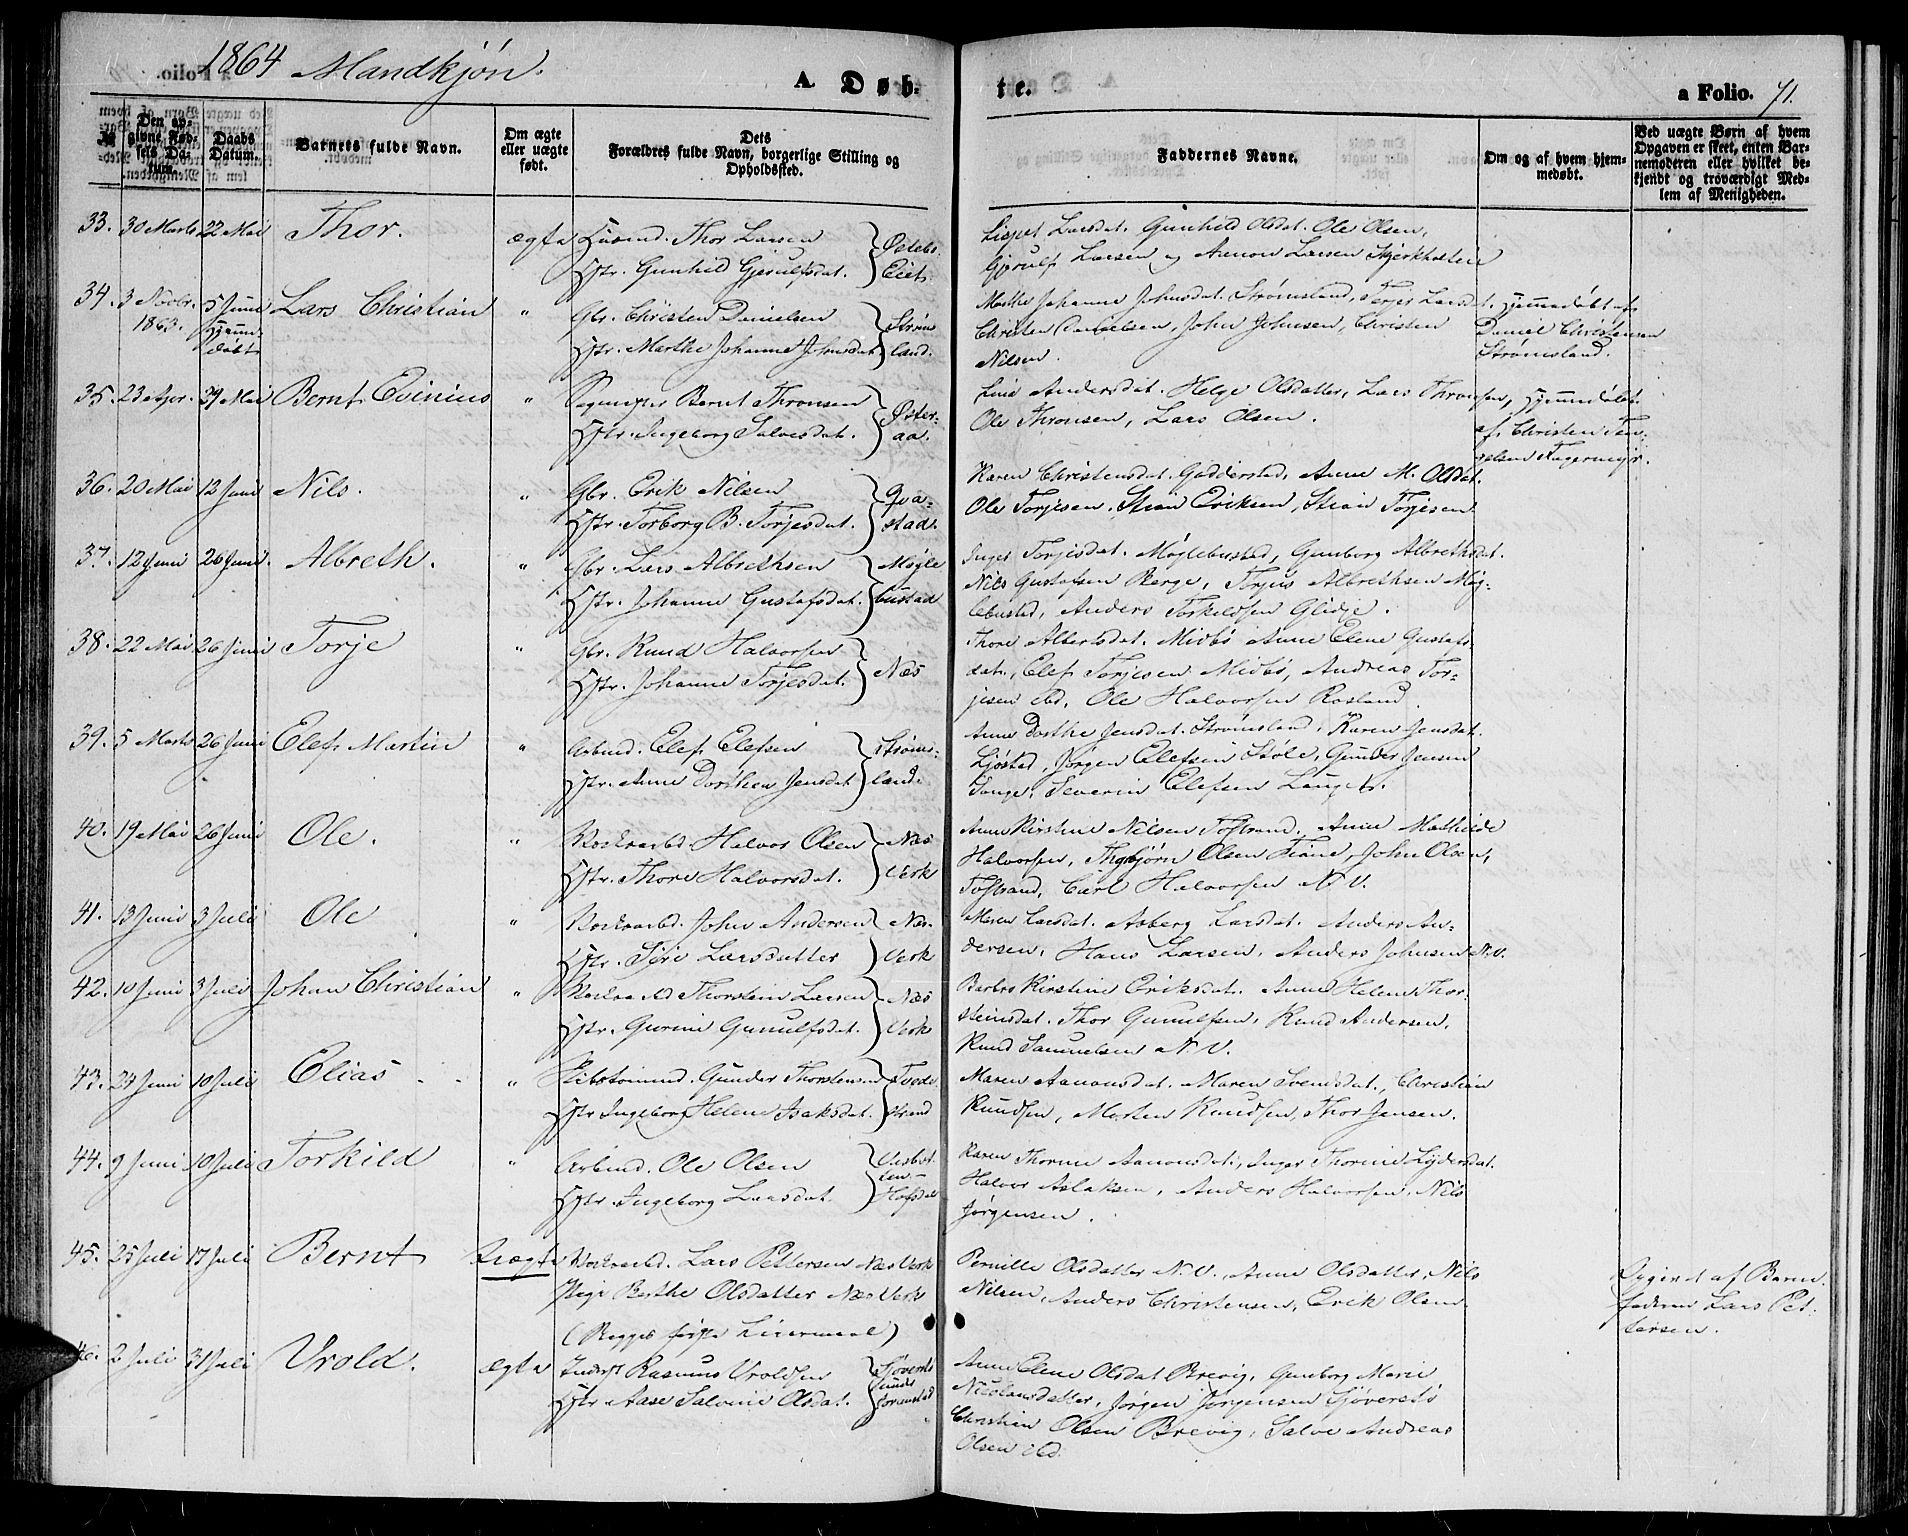 1864 Mandkjøn.
A Døb-
te.
a Folio. 71.
№
Den an-
givne Fød-
sels Da-
tum.
Daabs
Datum.
Barnets fulde Navn.
Om ægte
eller uægte
født.
Dets
Forældres fulde Navn, borgerlige Stilling og
Opholdssted.
Faddernes Navne.
Om og af hvem hjem-
medøbt.
Ved uægte Børn af hvem
Opgaven er skeet, enten Bar-
nemoderen eller hvilket be-
kjendt og troværdigt Med-
lem af Menigheden.
33. 30 Marts 22 Mai Thor. ægta Huusmd. Thor Larsen
Hstr. Gunhild Gjerulfsdat.
Østebø
Eiet.
Lispet Larsdat. Gunhild Olsdat. Ole Olsen,
Gjerulf Larsen og Aanon Larsen Skjerkholten
34. 3 Novbr. 1863. 5 Juni Hjemme døbt Lars Christian " Gbr. Christen Danielsen
Hstr. Marthe Johanne Johnsdat.
Strøms
land.
Marthe Johanne Johnsdat. Strømsland, Terjer Larsdat.
Christen Danielsen, John Johnsen, Christen
Nilsen.
Hjemmedøbt af
Daniel Christensen
Strømsland.
35. 23 Apr. 29 Mai Bernt Evinius " Sagmester Bernt Thronsen
Hstr. Ingeborg Salvesdat.
Øster-
aa.
Lina Andersdat. Helge Olsdatter, Lars Thronsen,
Ole Thronsen, Lars Olsen.
Hjemmedøbt
af Christen Ten-
gelsen Fagermyr.
36. 20 Mai 12 Juni Nils. " Gbr. Erik Nilsen
Hstr. Torborg B. Torjesdat.
Qva-
stad.
Karen Christensdat. Godderstad, Anne M. Olsdat.
Ole Torjesen, Stian Eriksen, Stian Torjesen
37. 12 Juni 26 Juni. Albreth. " Gbr. Lars Albrethsen
Hstr. Johanne Gustafsdat.
Møgle
bustad
Inger Torjisdat. Møglebustad, Gunborg Albrethsdat.
Nils Gustafsen Berge, Torjus Albrethsen Møg-
lebustad, Anders Torkeldsen Glidje.
38. 22 Mai 26 Juni Torje " Gbr. Knud Halvorsen
Hstr. Johanne Torjesdat.
Næs
Thore Albertsdat. Midbø Anne Elene Gustafs-
dat., Elef Torjesen Midbø, Andreas Tor-
jesen ibd, Ole Halvorsen Rosland.
39. 5 Marts 26 Juni Elef Martin " Arbmd. Elef Elefsen
Hstr. Anne Dorthea Jensdat
Strøms-
land.
Anne Dorthe Jensdat. Strømsland, Karen Jensdat.
Ljøstad, Jørgen Elefsen Støle, Gunder Jensen
Songe, Severin Elefsen Langer.
40. 19 Mai 26 Juni Ole. " Værksarbd. Halvor Olsen
Hstr. Thore Halvorsdat.
Næs
Verk
Anne Kirstine Nilsen Tostrand, Anne Mathilde
Halvorsen, Thorbjørn Olsen Fiane, John Olsen,
Tostrand, Carl Halvorsen N. V.
41. 13 Juni 3 Juli Ole " Værksarbd. John Andersen
Hstr. Siri Larsdatter
Næs
Verk
Maren Larsdat. Asberg Larsdat. Anders An-
dersen, Hans Larsen, Anders Johnsen N. V.
42. 10 Juni 3 Juli Johan Christian " Værksarbd Thorstein Larsen
Hstr. Gurine Gunulfsdat.
Næs
Verk
Barbro Kirstine Eriksdat. Anne Helene Thor-
steinsdat. Thor Gunulfsen, Knud Andersen,
Knud Samuelsen N. V.
43. 24 Juni 10 Juli Elias " Skibstømmd. Gunder Thorstensen
Hstr Ingeborg Helene Isaksdat.
Tvede
strand
Maren Aanonsdat. Maren Svendsdat., Christian
Knudsen, Morten Knudsen, Thor Jensen.
44. 9 Juni 10 Juli Torkild " Arbmd. Ole Olsen
Hstr. Ingeborg Larsdat.
Hofsdal
Karen Thorine Aanonsdat., Inger Thorine Lydersdat.
Halvor Aslaksen, Anders Halvorsen, Nils
Jørgensen.
45. 25 Juli 17 Juli Bernt Uægte Værksarbd. Lars Pettersen Næs Verk
Pige Berthe Olsdatter Næs Verk
(Begges første Leiermaal)
Pernille Olsdatter N. V., Anne Olsdatter, Nils
Nilsen, Anders Christensen, Erik Olsen
Opgivet af Barne
faderen Lars Pet-
tersen.
46. 2 Juli 31 Juli Vrold. ægta Inderst Rasmus Vroldsen
Hstr Aase Salomine Olsdat.
Anne Elene Olsdat Brevig, Gunborg Marie
Nicolausdatter, Jørgen Jørgensen Sjøverstø
Christian Olsen Brevig, Salve Andreas
Olsen ibd.